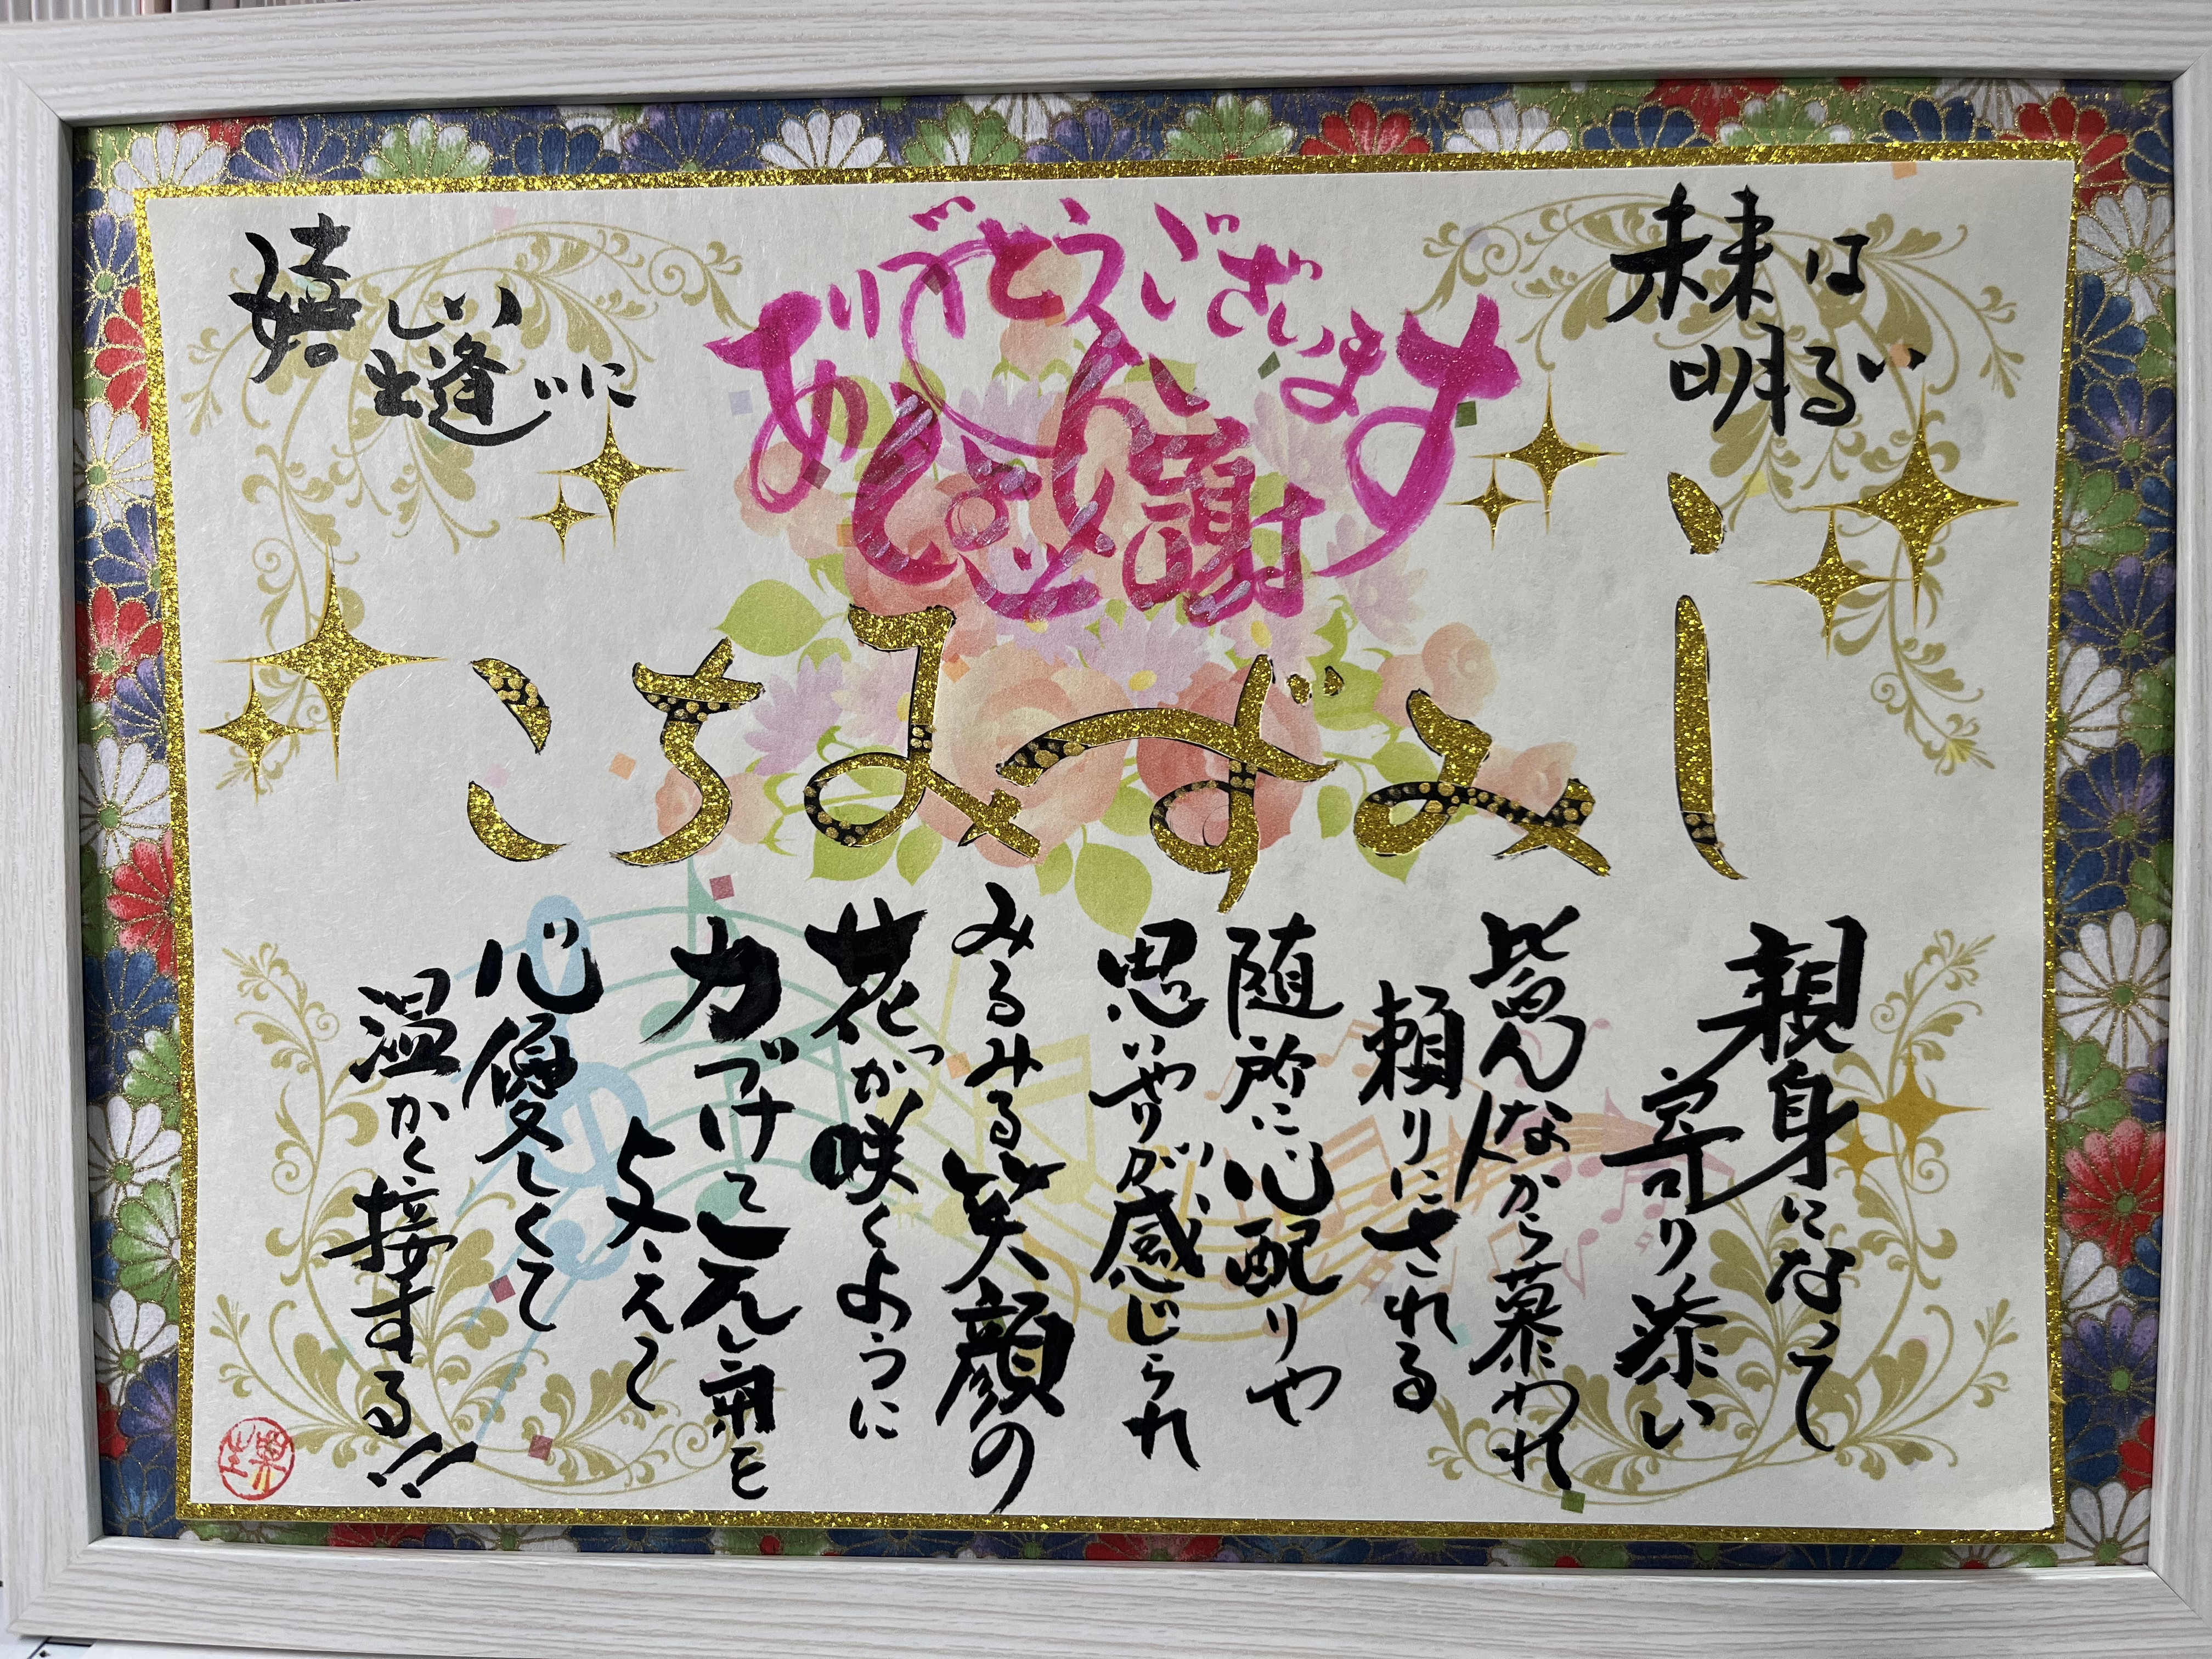 未来は
明るい
ありがとうございます
感謝
嬉しい
出逢いに
しみずみちこ
親身になって
寄り添い
皆んなから慕われ
頼りにされる
随所に心配りや
思いやりが感じられ
みるみる笑顔の
花が咲くように
力づけて元気を
与えて
心優しくて
温かく接する!!